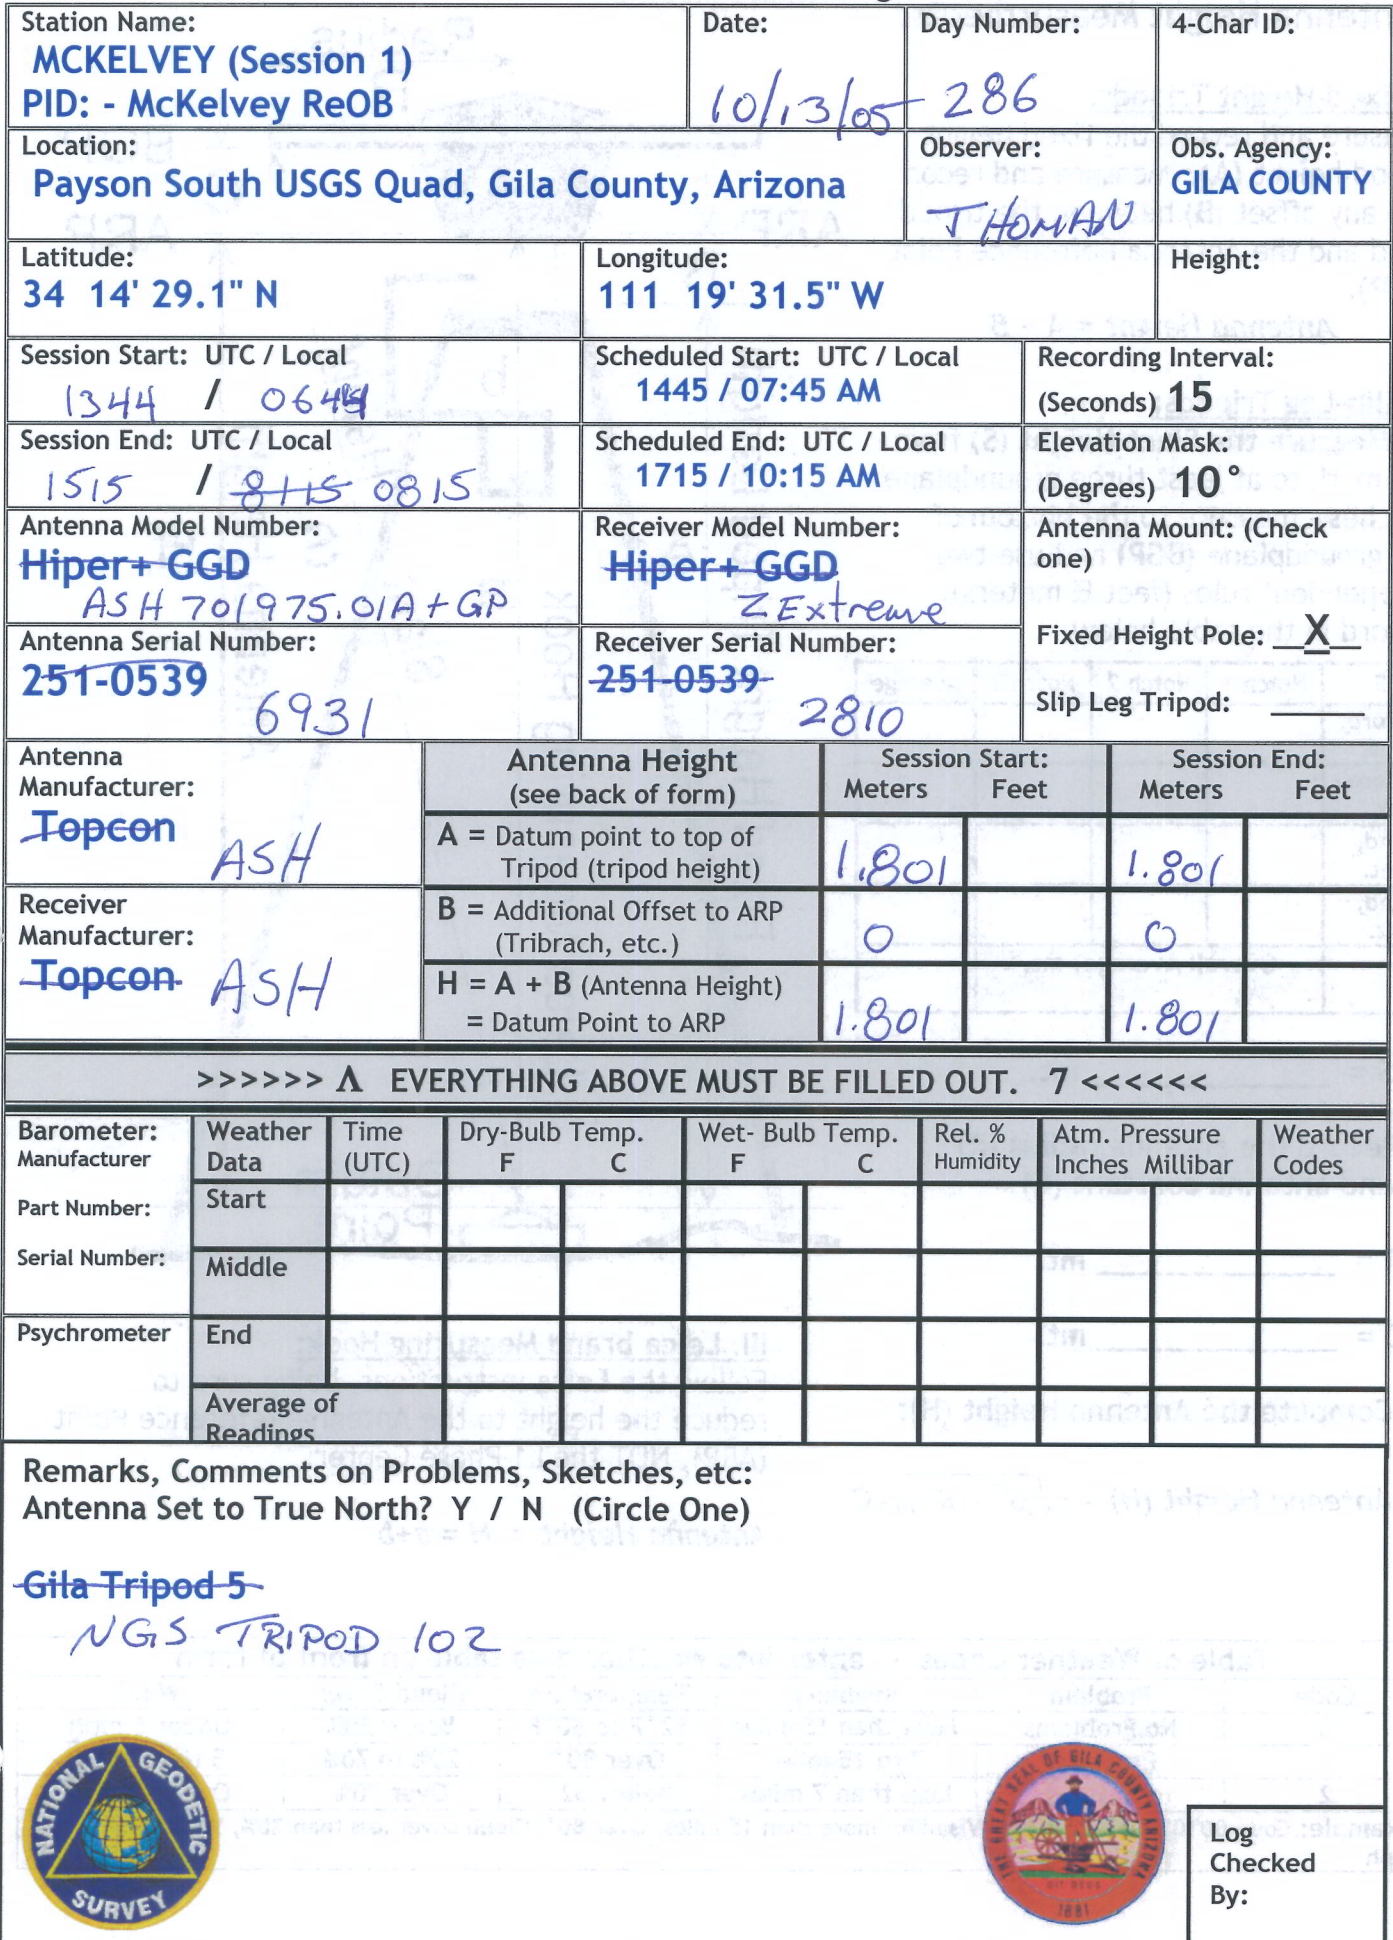 Station Name:
MCKELVEY (Session 1)
PID: - McKelvey ReOB
Date:
10/13/05
Day Number:
286
4-Char ID:
Location:
Payson South USGS Quad, Gila County, Arizona
Observer:
THOMAN
Obs. Agency:
GILA COUNTY
Latitude:
34 14' 29.1" N
Longitude:
111 19' 31.5" W
Height:
Session Start: UTC / Local
1344 / 0644
Scheduled Start: UTC / Local
1445 / 07:45 AM
Recording Interval:
(Seconds) 15
Session End: UTC / Local
1515 / 8115 0815
Scheduled End: UTC / Local
1715 / 10:15 AM
Elevation Mask:
(Degrees) 10°
Antenna Model Number:
Hiper+ GGD
ASH 701975.01A + GP
Receiver Model Number:
Hiper+ GGD
Z Extreme
Antenna Mount: (Check
one)
Fixed Height Pole: __X__
Slip Leg Tripod: ______
Antenna Serial Number:
251-0539
6931
Receiver Serial Number:
251-0539
2810
Antenna
Manufacturer:
Topcon
ASH
Antenna Height
(see back of form)
Session Start:
Meters Feet
Session End:
Meters Feet
A = Datum point to top of
Tripod (tripod height)
1.801 1.801
Receiver
Manufacturer:
Topcon ASH
B = Additional Offset to ARP
(Tribrach, etc.)
0 0
H = A + B (Antenna Height)
= Datum Point to ARP
1.801 1.801
>>>>>> Λ EVERYTHING ABOVE MUST BE FILLED OUT. 7 <<<<<<
Barometer:
Manufacturer
Part Number:
Serial Number:
Psychrometer
Weather
Data
Time
(UTC)
Dry-Bulb Temp.
F C
Wet- Bulb Temp.
F C
Rel. %
Humidity
Atm. Pressure
Inches Millibar
Weather
Codes
Start
Middle
End
Average of
Readings
Remarks, Comments on Problems, Sketches, etc:
Antenna Set to True North? Y / N (Circle One)
Gila Tripod 5
NGS TRIPOD 102
NATIONAL GEODETIC
SURVEY
THE GREAT SEAL OF GILA COUNTY ARIZONA
1881
Log
Checked
By: